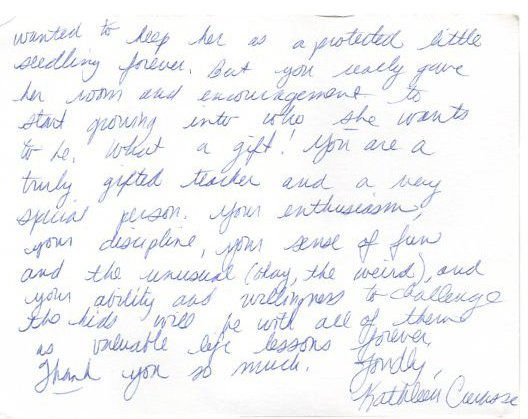 wanted to keep her as a protected little
seedling forever. But you really gave
her room and encouragement to
start growing into who she wants
to be. What a gift! You are a
truly gifted teacher and a very
special person. Your enthusiasm,
your discipline, your sense of fun
and the unusual (okay, the weird), and
your ability and willingness to challenge
the kids will be with all of them
as valuable life lessons forever.
Thank you so much. Fondly,
Kathleen